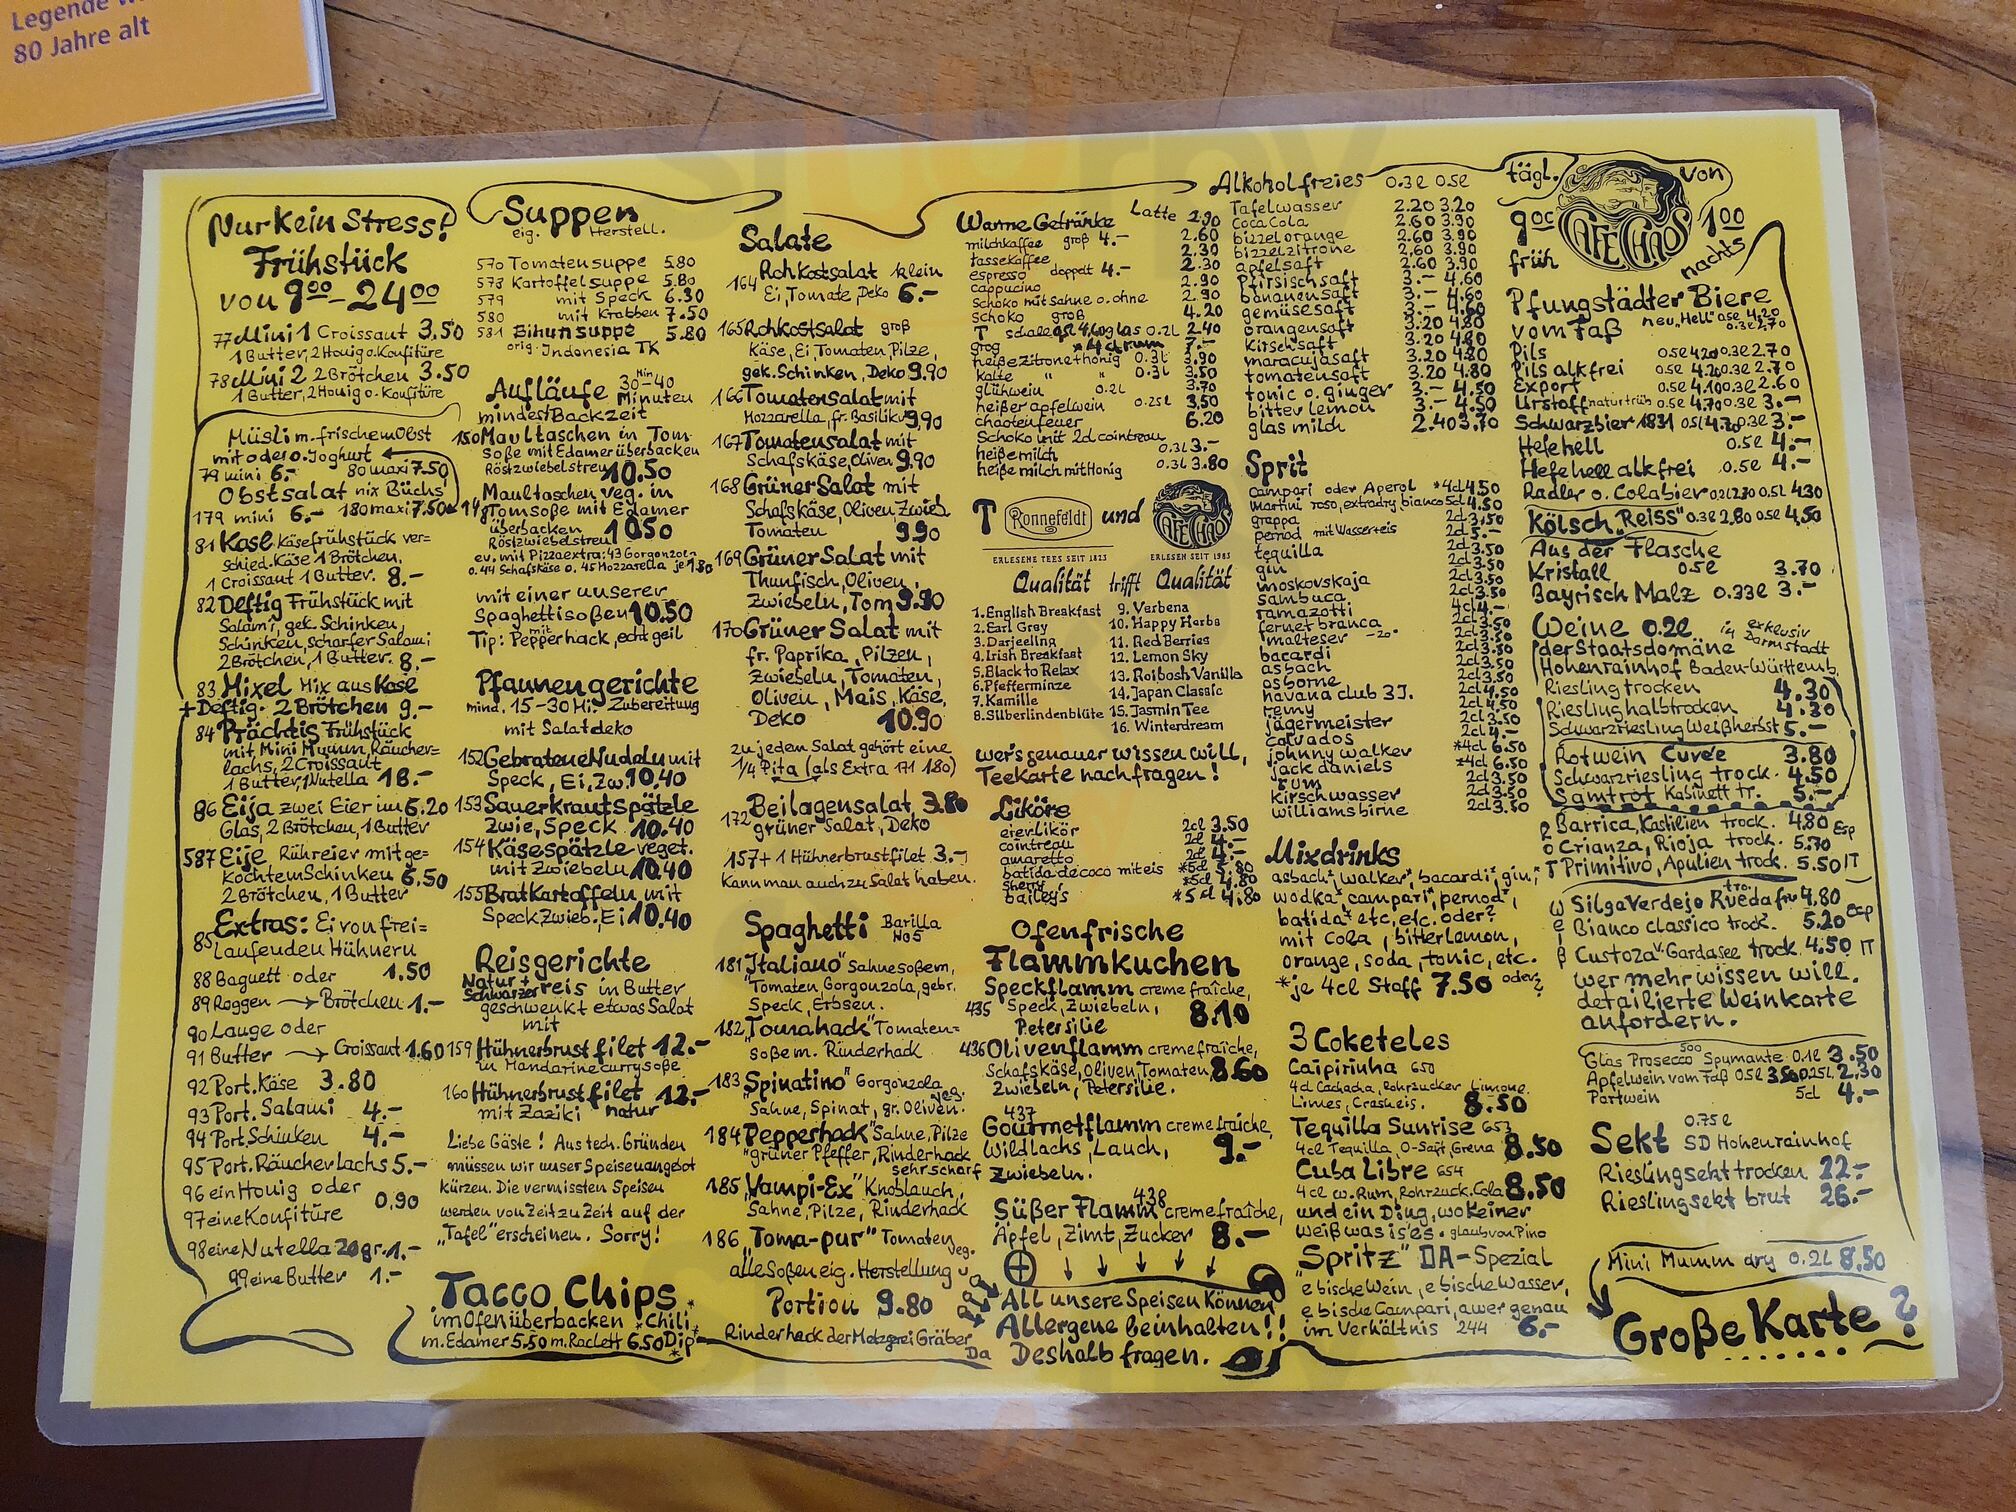 Legende
80 Jahre alt
Nur Kein Stress!
Frühstück
von 9⁰⁰-24⁰⁰
77 Mini 1 Croissant 3,50
1 Butter, 2 Honig o. Konfitüre
78 Mini 2 2 Brötchen 3.50
1 Butter, 2 Honig o. Konfitüre
Müsli m. frischem Obst
mit oder o. Joghurt
79 mini 6.- 80 maxi 7.50
Obstsalat nix Büchs'
179 mini 6.- 180 maxi 7.50
81 Käse Käsefrühstück ver-
schied. Käse 1 Brötchen,
1 Croissant 1 Butter. 8.-
82 Deftig Frühstück mit
Salami, gek. Schinken,
Schinken, scharfer Salami
2 Brötchen, 1 Butter. 8.-
83 Mixel Mix aus Käse
+ Deftig. 2 Brötchen 9.-
84 Prächtig Frühstück
mit Mini Mumm, Räucher=
lachs, 2 Croissant
1 Butter, 1 Nutella 18.-
86 Eija zwei Eier im 6.20
Glas, 2 Brötchen, 1 Butter
587 Eije Rühreier mit ge=
kochtem Schinken 6.50
2 Brötchen, 1 Butter
Extras: Ei von frei=
85 laufenden Hühnern
88 Baguett oder 1.50
89 Roggen → Brötchen 1.-
90 Lauge oder
91 Butter → Croissant 1.60
92 Port. Käse 3.80
93 Port. Salami 4.-
94 Port. Schinken 4.-
95 Port. Räucherlachs 5.-
96 ein Honig oder
97 eine Konfitüre 0,90
98 eine Nutella 20gr. 1.-
99 eine Butter 1.-
Suppen
eig. Herstell.
570 Tomatensuppe 5.80
578 Kartoffelsuppe 5.80
579 mit Speck 6.30
580 mit Krabben 7.50
581 Bihunsuppe 5.80
orig. Indonesia TK
Aufläufe 30-40 Minuten
mindest Backzeit
150 Maultaschen in Tom-
soße mit Edamer überbacken
Röstzwiebelstreu 10.50
Maultaschen veg. in
148 Tomsoße mit Edamer
überbacken
Röstzwiebelstreu 10.50
ev. mit Pizzaextra: 43 Gorgonzola
o. 44 Schafskäse o. 45 Mozzarella je 1.80
mit einer unserer
Spaghettisoßen 10.50
Tip: mit Pepperhack, echt geil
Pfannengerichte
mind. 15-30 Mi. Zubereitung
mit Salatdeko
152 Gebratene Nudeln mit
Speck, Ei, Zw. 10.40
153 Sauerkrautspätzle
Zwie, Speck 10.40
154 Käsespätzle veget.
mit Zwiebeln 10.40
155 Bratkartoffeln mit
Speck Zwieb., Ei 10.40
Reisgerichte
Natur +
Schwarzerreis in Butter
geschwenkt etwas Salat
mit
159 Hühnerbrustfilet 12.-
in Mandarinecurrysoße
160 Hühnerbrustfilet 12.-
mit Zaziki natur
Liebe Gäste! Aus tech. Gründen
müssen wir unser Speisenangebot
kürzen. Die vermissten Speisen
werden von Zeit zu Zeit auf der
„Tafel" erscheinen. Sorry!
Tacco Chips
im Ofen überbacken *Chili
m. Edamer 5.50 m. Raclett 6.50 Dip
Salate
Rohkostsalat klein
164 Ei, Tomate, Deko 6.-
165 Rohkostsalat groß
Käse, Ei, Tomaten, Pilze,
gek. Schinken, Deko 9.90
166 Tomatensalat mit
Mozzarella, fr. Basiliku 9,90
167 Tomatensalat mit
Schafskäse, Oliven 9.90
168 Grüner Salat mit
Schafskäse, Oliven, Zwieb
Tomaten 9.90
169 Grüner Salat mit
Thunfisch, Oliven,
Zwiebeln, Tom 9.90
170 Grüner Salat mit
fr. Paprika, Pilzen,
Zwiebeln, Tomaten,
Oliven, Mais, Käse,
Deko 10.90
zu jedem Salat gehört eine
1/4 Pita (als Extra 171 1.80)
Beilagensalat 3.80
172 grüner Salat, Deko
157 + 1 Hühnerbrustfilet 3.-
kann man auch zu Salat haben.
Spaghetti Barilla No 5
181 „Italiano" Sahnesoße m.
Tomaten, Gorgonzola, gebr.
Speck, Erbsen.
182 „Tomahack" Tomaten=
soße m. Rinderhack
183 „Spinatino" Gorgonzola
Sahne, Spinat, gr. Oliven. veg.
184 „Pepperhack" Sahne, Pilze
grüner Pfeffer, Rinderhack
sehr scharf
185 „Vampi-Ex" Knoblauch,
Sahne, Pilze, Rinderhack
186 „Toma-pur" Tomaten veg.
alle Soßen eig. Herstellung
Portion 9.80
Rinderhack der Metzgerei Gräber
Da
Warme Getränke Latte 2.90
milchkaffee groß 4.- 2.60
tassekaffee 2.30
espresso doppelt 4.- 2.30
cappucino 2.90
schoko mit sahne o. ohne 2.90
schoko groß 4.20
grog
heiße zitrone + honig 0.3l 3.90
kalte " " 0.3l 3.50
glühwein 0.2l 3.70
heißer apfelwein 0.25l 3,50
chaotenfeuer 6.20
Schoko mit 2cl cointreau
heiße milch 0.3l 3.-
heiße milch mit Honig 0.3l 3.80
T Ronnefeldt und CAFE CHAOS
ERLESENE TEES SEIT 1823 ERLESEN SEIT 1985
Qualität trifft Qualität
1. English Breakfast
2. Earl Grey
3. Darjeeling
4. Irish Breakfast
5. Black to Relax
6. Pfefferminze
7. Kamille
8. Silberlindenblüte
9. Verbena
10. Happy Herbs
11. Red Berries
12. Lemon Sky
13. Roibosh Vanilla
14. Japan Classic
15. Jasmin Tee
16. Winterdream
wer's genauer wissen will,
Teekarte nachfragen!
Liköre
eierlikör 2cl 3.50
cointreau 2cl 4.-
amaretto 2cl 4.-
batida de coco mit eis
sherry *5cl 4.80
bailey's *5cl 4.80
Ofenfrische
Flammkuchen
Speckflamm creme fraîche,
435 Speck, Zwiebeln,
Petersilie 8.10
436 Olivenflamm creme fraîche,
Schafskäse, Oliven, Tomaten, 8.60
Zwiebeln, Petersilie.
437
Gourmetflamm creme fraîche,
Wildlachs, Lauch, 9.-
Zwiebeln.
438
Süßer Flamm creme fraîche,
Apfel, Zimt, Zucker 8.-
All unsere Speisen können
Allergene beinhalten!!
Deshalb fragen.
Alkoholfreies 0.3l 0.5l
Tafelwasser 2.20 3.20
Coca Cola 2.60 3.90
bizzel orange 2.60 3.90
bizzel zitrone 2.60 3.90
apfelsaft 2.60 3.90
Pfirsichsaft 3.- 4.60
bananensaft 3.- 4.60
gemüsesaft 3.- 4.60
orangensaft 3.20 4.80
Kirschsaft 3.20 4.80
maracujasaft 3.20 4.80
tomatensaft 3.20 4.80
tonic o. ginger 3.- 4.50
bitter lemon 3.- 4.50
glas milch 2.40 3.70
Sprit
campari oder Aperol *4cl 4.50
martini roso, extradry, bianco 5cl 4.50
grappa 2cl 3.50
pernod mit Wassereis 2cl 5.-
tequilla 2cl 3.50
gin
moskovskaja
sambuca
ramazotti
fernet branca
malteser -20°
bacardi
asbach
osborne
havana club 3J.
remy
jägermeister
calvados
johnny walker
jack daniels
rum
kirschwasser
williamsbirne 2cl 3.50
Mixdrinks
asbach*, walker*, bacardi*, gin*,
wodka*, campari*, pernod*,
batida*, etc, etc. oder?
mit Cola, bitterlemon,
orange, soda, tonic, etc.
*je 4cl Stoff 7.50 oder?
3 Coketeles
Caipirinha 650
4cl Cachaca, Rohrzucker Limone
Limes, Crasheis. 8.50
Tequilla Sunrise 653
4cl Tequilla, O-Saft, Grena 8.50
Cuba Libre 654
4cl w. Rum, Rohrzuck. Cola 8.50
und ein Ding, wo keiner
weiß was is' es. glaub von Pino
„Spritz" DA-Spezial
e bische Wein, e bische Wasser,
e bische Campari, awer genau
im Verhältnis 244 6.-
tägl. von
9⁰⁰ CAFE CHAOS 1⁰⁰
früh nachts
Pfungstädter Biere
vom Faß neu „Hell" 0.5l 4.20
0.3l 2.70
Pils 0.5l 4.20 0.3l 2.70
Pils alkfrei 0.5l 4.20 0.3l 2.70
Export 0.5l 4.10 0.3l 2.60
Urstoff naturtrüb 0.5l 4.70 0.3l 3.-
Schwarzbier 1831 0.5l 4.70 0.3l 3.-
Hefehell 0.5l 4.-
Hefehell alkfrei 0.5l 4.-
Radler o. Colabier 0.3l 2.70 0.5l 4.30
Kölsch „Reiss" 0.3l 2.80 0.5l 4,50
Aus der Flasche
Kristall 0.5l 3.70
Bayrisch Malz 0.33l 3.-
Weine 0.2l exklusiv
in Darmstadt
der Staatsdomäne
Hohenrainhof Baden-Württemb.
Riesling trocken 4.30
Riesling halbtrocken 4.30
Schwarzriesling Weißherbst 5.-
Rotwein Cuvée 3.80
Schwarzriesling trock. 4.50
Samtrot Kabinett tr. 5.-
R Barrica, Kastilien trock. 4.80 Esp
O Crianza, Rioja trock. 5.70
T Primitivo, Apulien trock. 5.50 IT
w Silga Verdejo Rueda tro. 4,80
e Bianco classico trock. 5.20 Esp
i
ß Custoza v. Gardasee trock. 4.50 IT
wer mehr wissen will.
detailierte Weinkarte
anfordern.
500
Glas Prosecco Spumante 0.1l 3.50
Apfelwein vom Faß 0.5l 3.50 0.25l 2,30
Portwein 5cl 4.-
0.75l
Sekt SD Hohenrainhof
Rieslingsekt trocken 22.-
Rieslingsekt brut 26.-
Mini Mumm dry 0.2l 8.50
Große Karte?